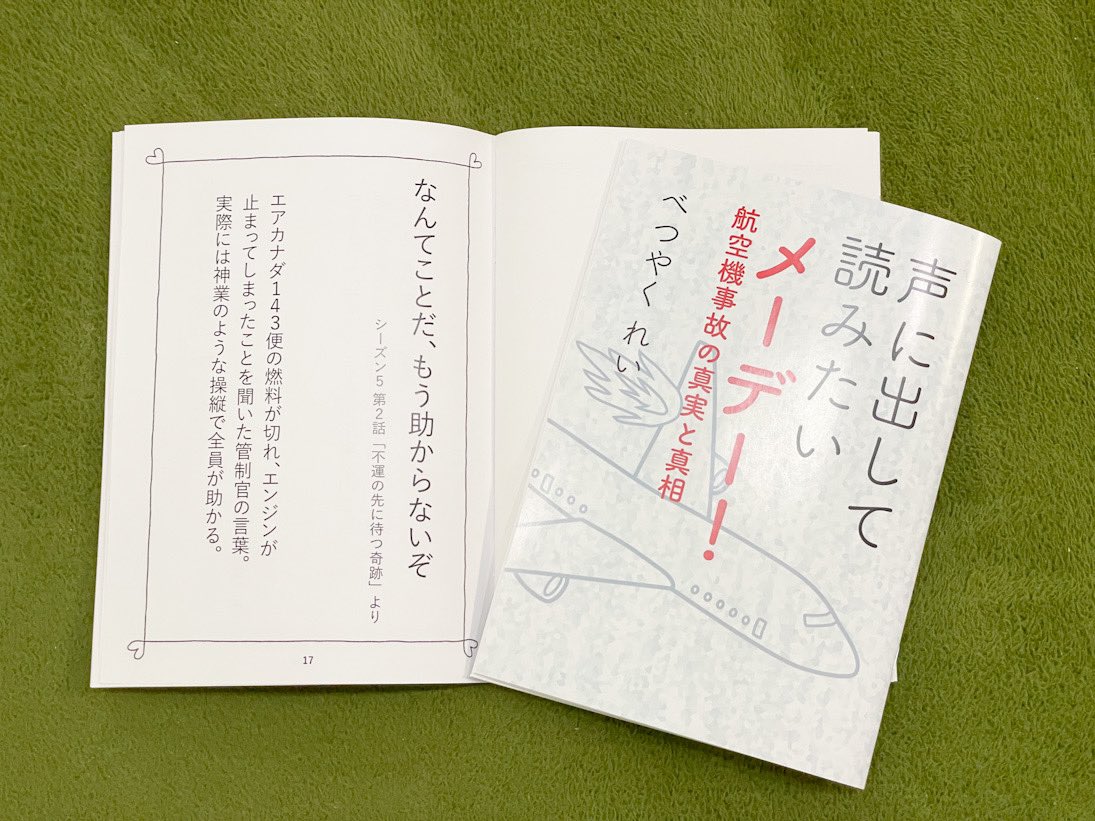 なんてことだ、もう助からないぞ
シーズン5 第2話「不運の先に待つ奇跡」より
エアカナダ143便の燃料が切れ、エンジンが
止まってしまったことを聞いた管制官の言葉。
実際には神業のような操縦で全員が助かる。
17
声に出して
読みたい
メーデー！
航空機事故の真実と真相
べつやくれい